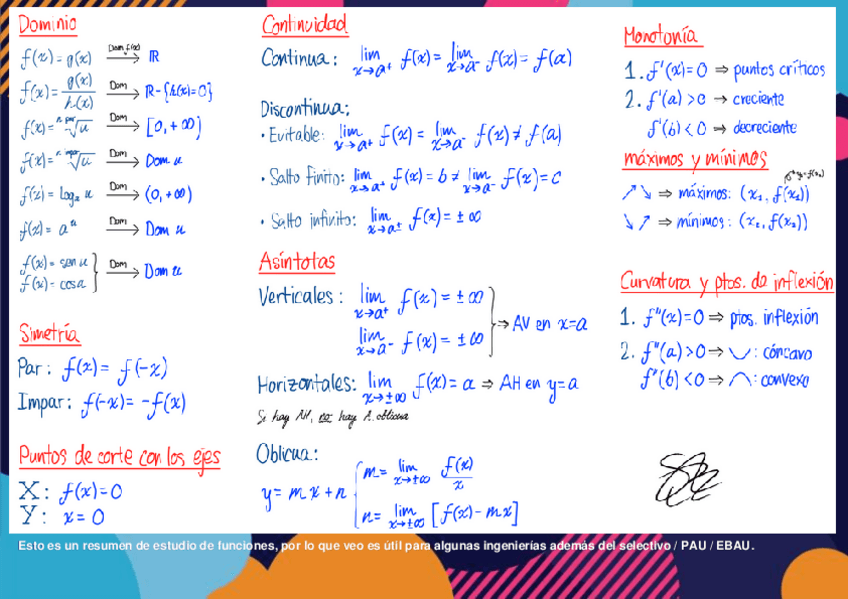 Dominio
f(x) = g(x) Dom f(x) → ℝ
f(x) = g(x)/h(x) Dom → ℝ - {h(x)=0}
f(x) = ⁿ ᵖᵃʳ√u Dom → [0, +∞)
f(x) = ⁿ ⁱᵐᵖᵃʳ√u Dom → Dom u
f(x) = logₐ u Dom → (0, +∞)
f(x) = aᵘ Dom → Dom u
f(x) = sen u
f(x) = cos u } Dom → Dom u
Simetría
Par: f(x) = f(-x)
Impar: f(-x) = -f(x)
Puntos de corte con los ejes
X: f(x) = 0
Y: x = 0
Continuidad
Continua: lim x→a⁺ f(x) = lim x→a⁻ f(x) = f(a)
Discontinua:
• Evitable: lim x→a⁺ f(x) = lim x→a⁻ f(x) ≠ f(a)
• Salto finito: lim x→a⁺ f(x) = b ≠ lim x→a⁻ f(x) = c
• Salto infinito: lim x→a± f(x) = ±∞
Asíntotas
Verticales: lim x→a⁺ f(x) = ±∞
lim x→a⁻ f(x) = ±∞ } ⇒ AV en x=a
Horizontales: lim x→±∞ f(x) = a ⇒ AH en y=a
Si hay AH, no hay A. oblicua
Oblicua:
y = mx + n { m = lim x→±∞ f(x)/x
n = lim x→±∞ [f(x) - mx]
Monotonía
1. f'(x) = 0 ⇒ puntos críticos
2. f'(a) > 0 ⇒ creciente
f'(b) < 0 ⇒ decreciente
máximos y mínimos
↗↘ ⇒ máximos: (x₁, f(x₁))
↘↗ ⇒ mínimos: (x₂, f(x₂))
Curvatura y ptos. de inflexión
1. f''(x) = 0 ⇒ ptos. inflexión
2. f''(a) > 0 ⇒ ◡: cóncavo
f''(b) < 0 ⇒ ◠: convexo
Esto es un resumen de estudio de funciones, por lo que veo es útil para algunas ingenierías además del selectivo / PAU / EBAU.